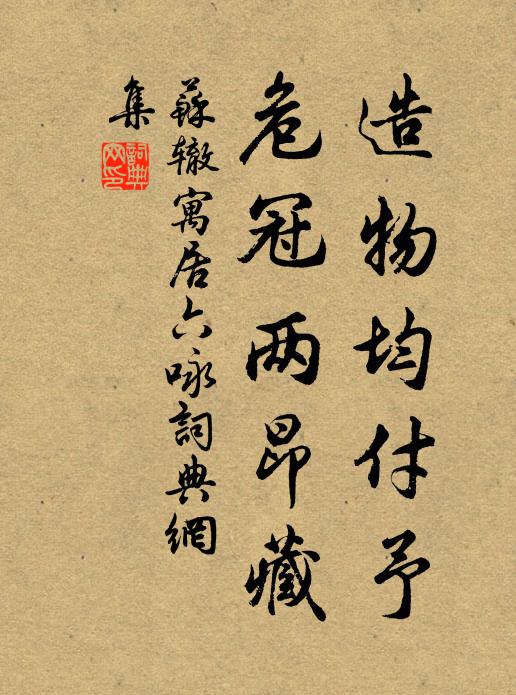 造物均付予
危冠两昂藏
蘇辙寓居六咏詞典網
集
詞典网印